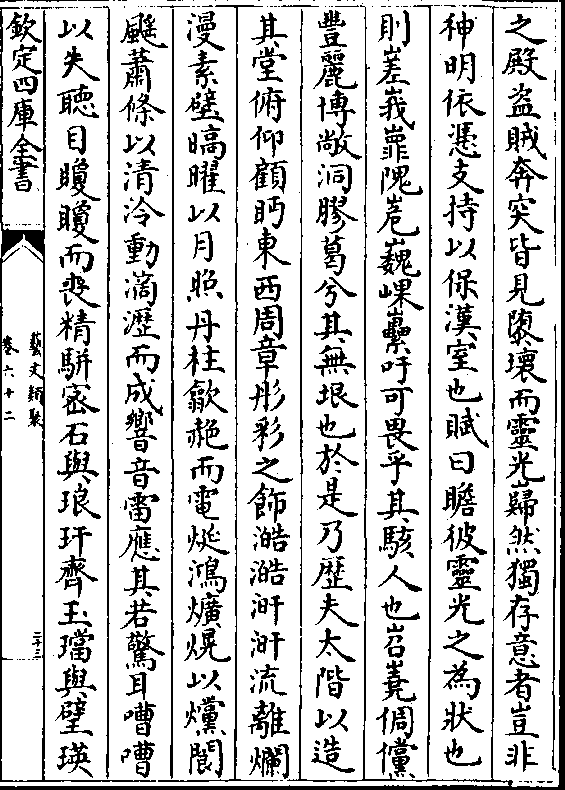 之殿盗賊奔突皆見隳壞而靈光巋然獨存意者豈非
神明依憑支持以保漢室也賦曰瞻彼靈光之為狀也
則嵳峩嶵隗峞巍㠕㠥吁可畏乎其駭人也岧嶤倜儻
豐麗博敞洞膠葛兮其無垠也於是乃歴夫太階以造
其堂俯仰顧眄東西周章彤彩之飾澔澔涆涆流離爛
漫素壁暠曜以月照丹柱歙赩而電烻鴻爌熀以爣閬
飈蕭條以清冷動滴瀝而成響音雷應其若驚耳嘈嘈
以失聽目矎矎而喪精駢宻石與琅玕齊玉璫與璧瑛
欽定四庫全書
藝文類聚
卷六十二
三十三